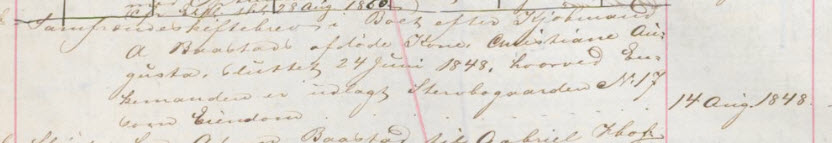 28 Aug. 1860.
Samfrændeskiftebrev i Boet efter Kjöbmand
A. Baastads afdöde Kone, Christiane Au-
gusta, sluttet 24 Juni 1848, hvorved En-
kemanden er udlagt Stervbogaarden No. 17
som Eiendom
14 Aug. 1848.
Baastad til Gabriel